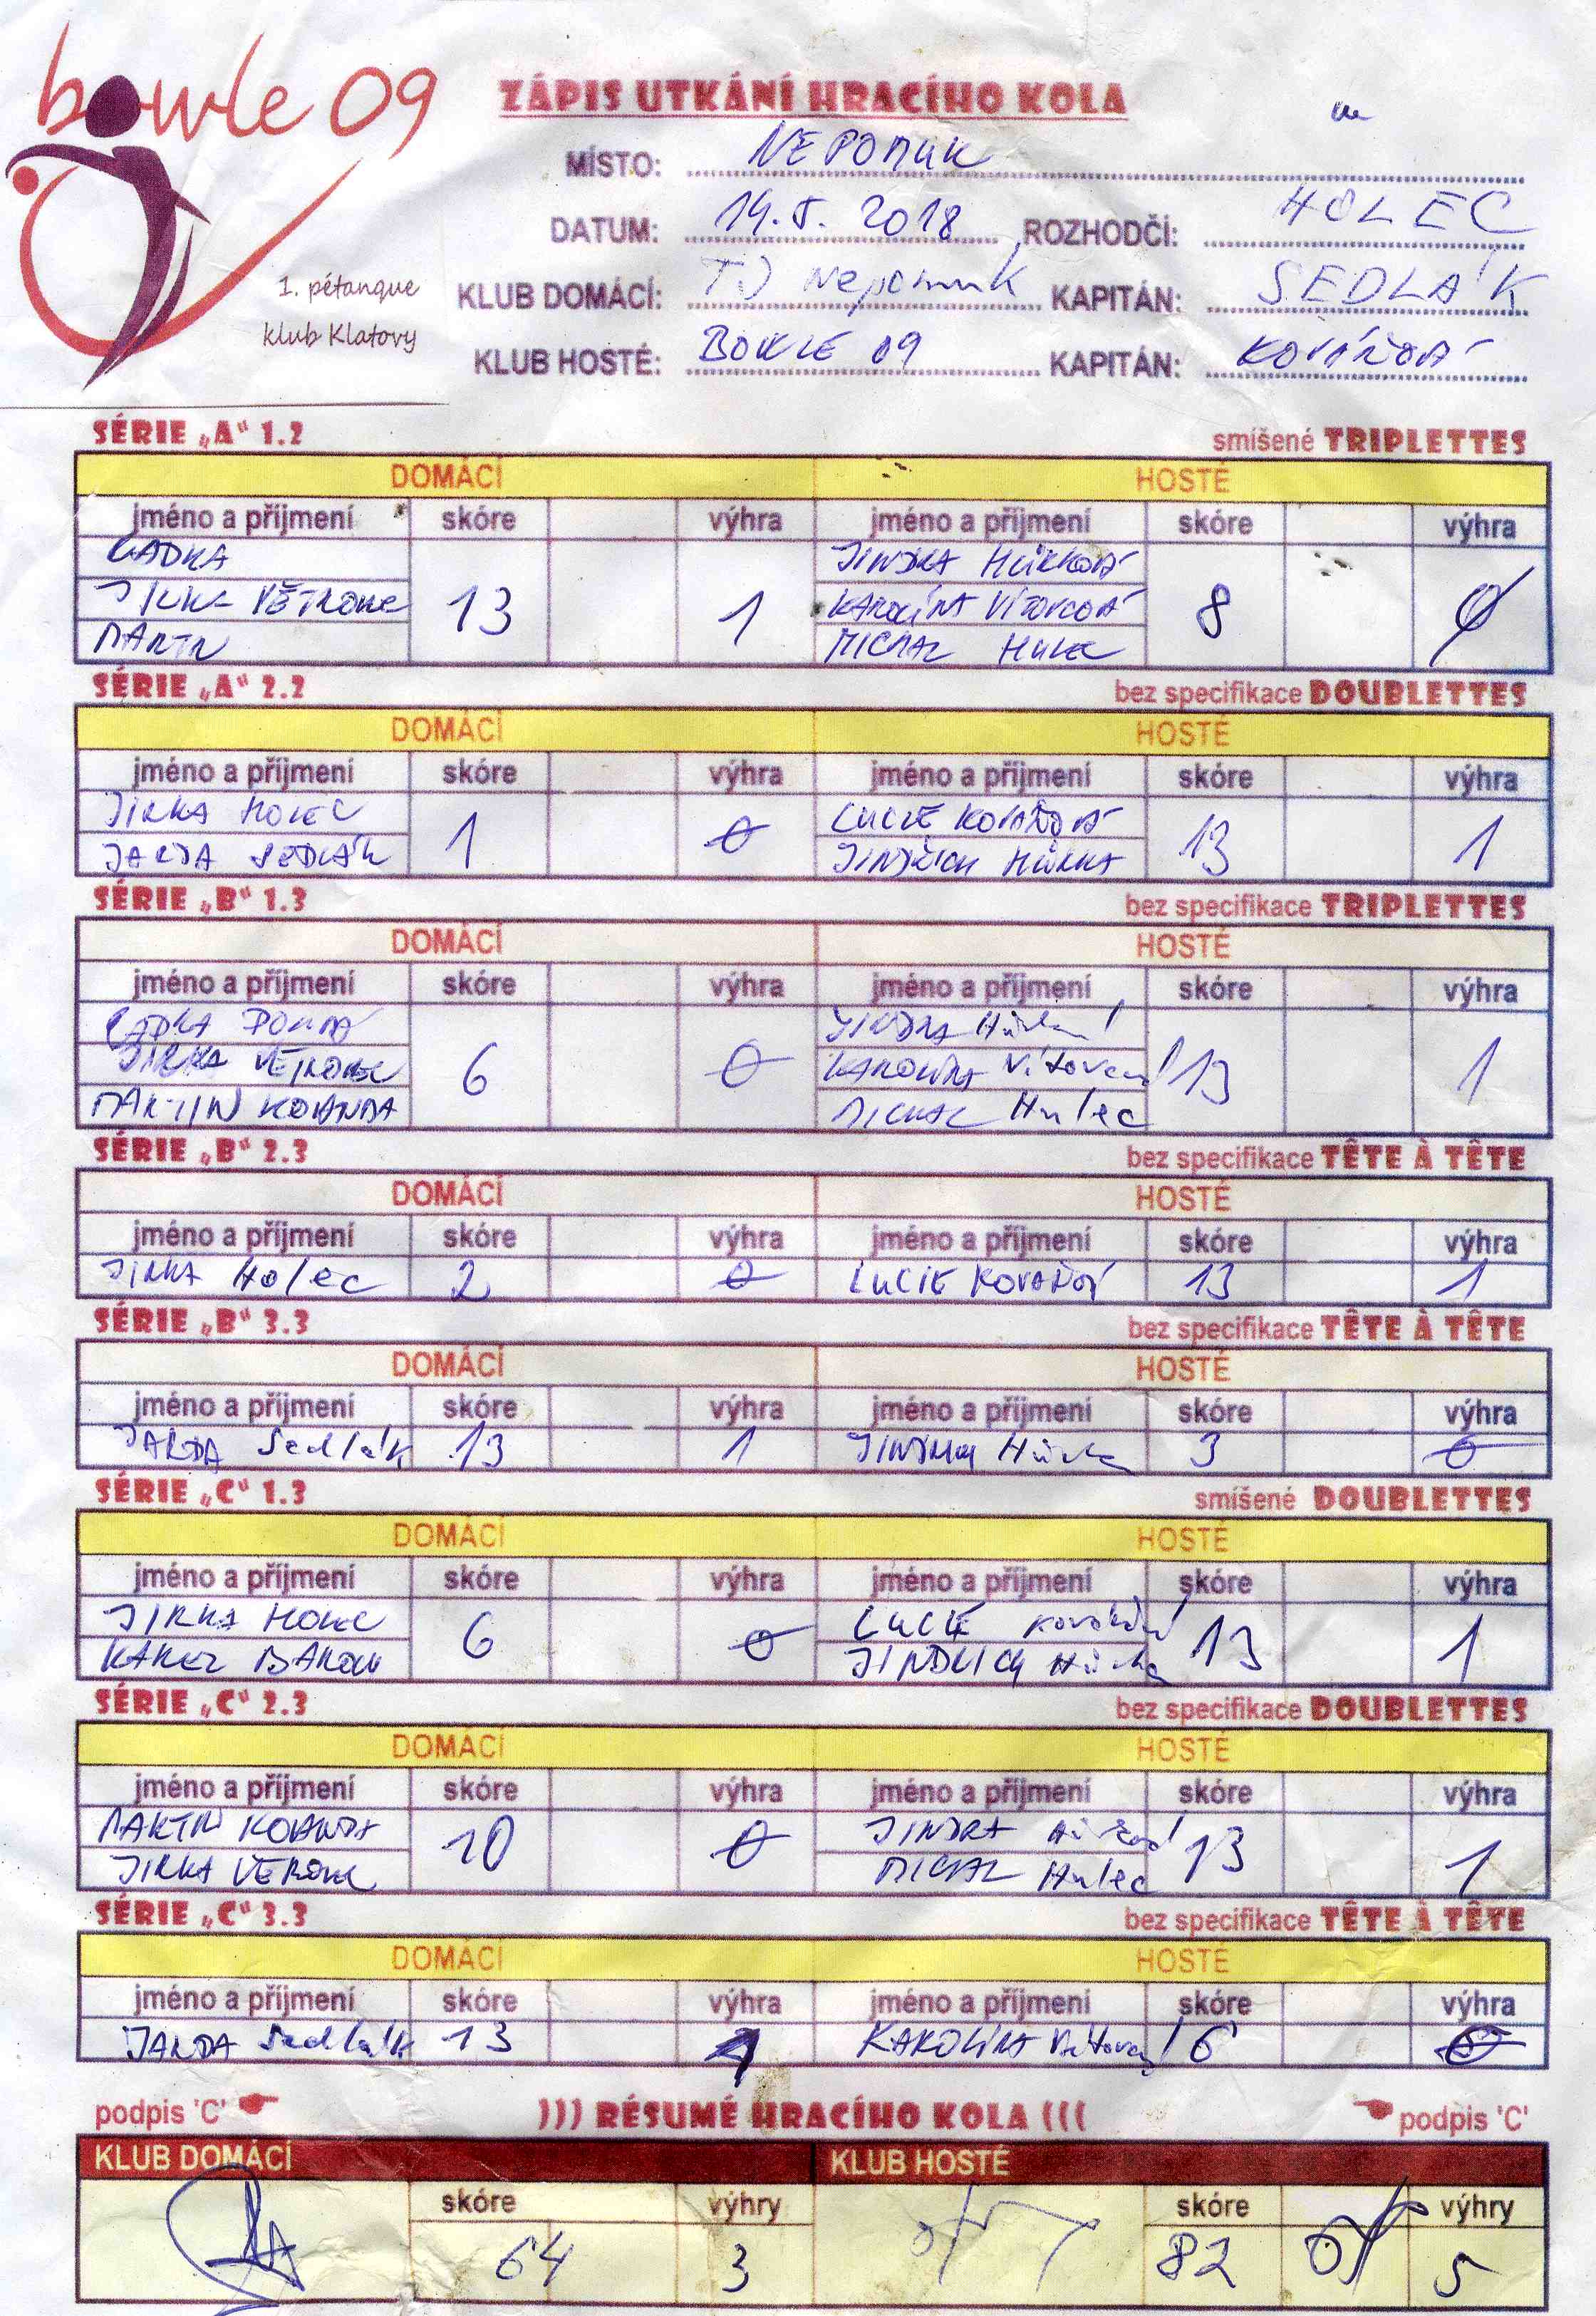 bowle 09
1. pétanque
klub Klatovy
ZÁPIS UTKÁNÍ HRACÍHO KOLA
MÍSTO: NEPOMUK
DATUM: 19.5. 2018 ROZHODČÍ: HOLEC
KLUB DOMÁCÍ: TJ Nepomuk KAPITÁN: SEDLÁK
KLUB HOSTÉ: BOWLE 09 KAPITÁN:
SÉRIE „A“ 1.2 smíšené TRIPLETTES
DOMÁCÍ HOSTÉ
jméno a příjmení skóre výhra jméno a příjmení skóre výhra
LADKA JINDRA HŮRKOVÁ
JIRKA 13 1 KAROLÍNA VÍTOVCOVÁ 8 0
MARTIN MICHAL HULEC
SÉRIE „A“ 2.2 bez specifikace DOUBLETTES
DOMÁCÍ HOSTÉ
jméno a příjmení skóre výhra jméno a příjmení skóre výhra
JIRKA HOLEC 1 0 LUCIE KOVAŘOVÁ 13 1
JARDA SEDLÁK JINDŘICH HŮRKA
SÉRIE „B“ 1.3 bez specifikace TRIPLETTES
DOMÁCÍ HOSTÉ
jméno a příjmení skóre výhra jméno a příjmení skóre výhra
LADKA JINDRA
JIRKA 6 0 KAROLÍNA 13 1
MARTIN KOVANDA MICHAL Hulec
SÉRIE „B“ 2.3 bez specifikace TÊTE À TÊTE
DOMÁCÍ HOSTÉ
jméno a příjmení skóre výhra jméno a příjmení skóre výhra
JIRKA Holec 2 0 LUCIE 13 1
SÉRIE „B“ 3.3 bez specifikace TÊTE À TÊTE
DOMÁCÍ HOSTÉ
jméno a příjmení skóre výhra jméno a příjmení skóre výhra
JARDA Sedlák 13 1 Hůrka 3 0
SÉRIE „C“ 1.3 smíšené DOUBLETTES
DOMÁCÍ HOSTÉ
jméno a příjmení skóre výhra jméno a příjmení skóre výhra
JIRKA HOLEC 6 0 LUCIE 13 1
KAREL JINDŘICH Hůrka
SÉRIE „C“ 2.3 bez specifikace DOUBLETTES
DOMÁCÍ HOSTÉ
jméno a příjmení skóre výhra jméno a příjmení skóre výhra
MARTIN KOVANDA 10 0 JINDRA 13 1
JIRKA MICHAL Hulec
SÉRIE „C“ 3.3 bez specifikace TÊTE À TÊTE
DOMÁCÍ HOSTÉ
jméno a příjmení skóre výhra jméno a příjmení skóre výhra
JARDA Sedlák 13 1 KAROLÍNA 6 0
podpis 'C' ))) RÉSUMÉ HRACÍHO KOLA ((( podpis 'C'
KLUB DOMÁCÍ KLUB HOSTÉ
skóre výhry skóre výhry
64 3 82 5